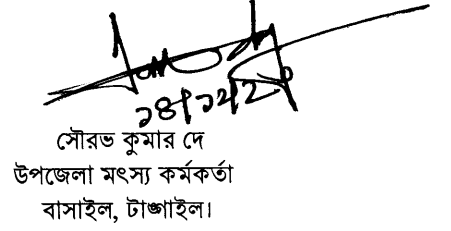 ১৪/১২/২০
সৌরভ কুমার দে
উপজেলা মৎস্য কর্মকর্তা
বাসাইল, টাঙ্গাইল।